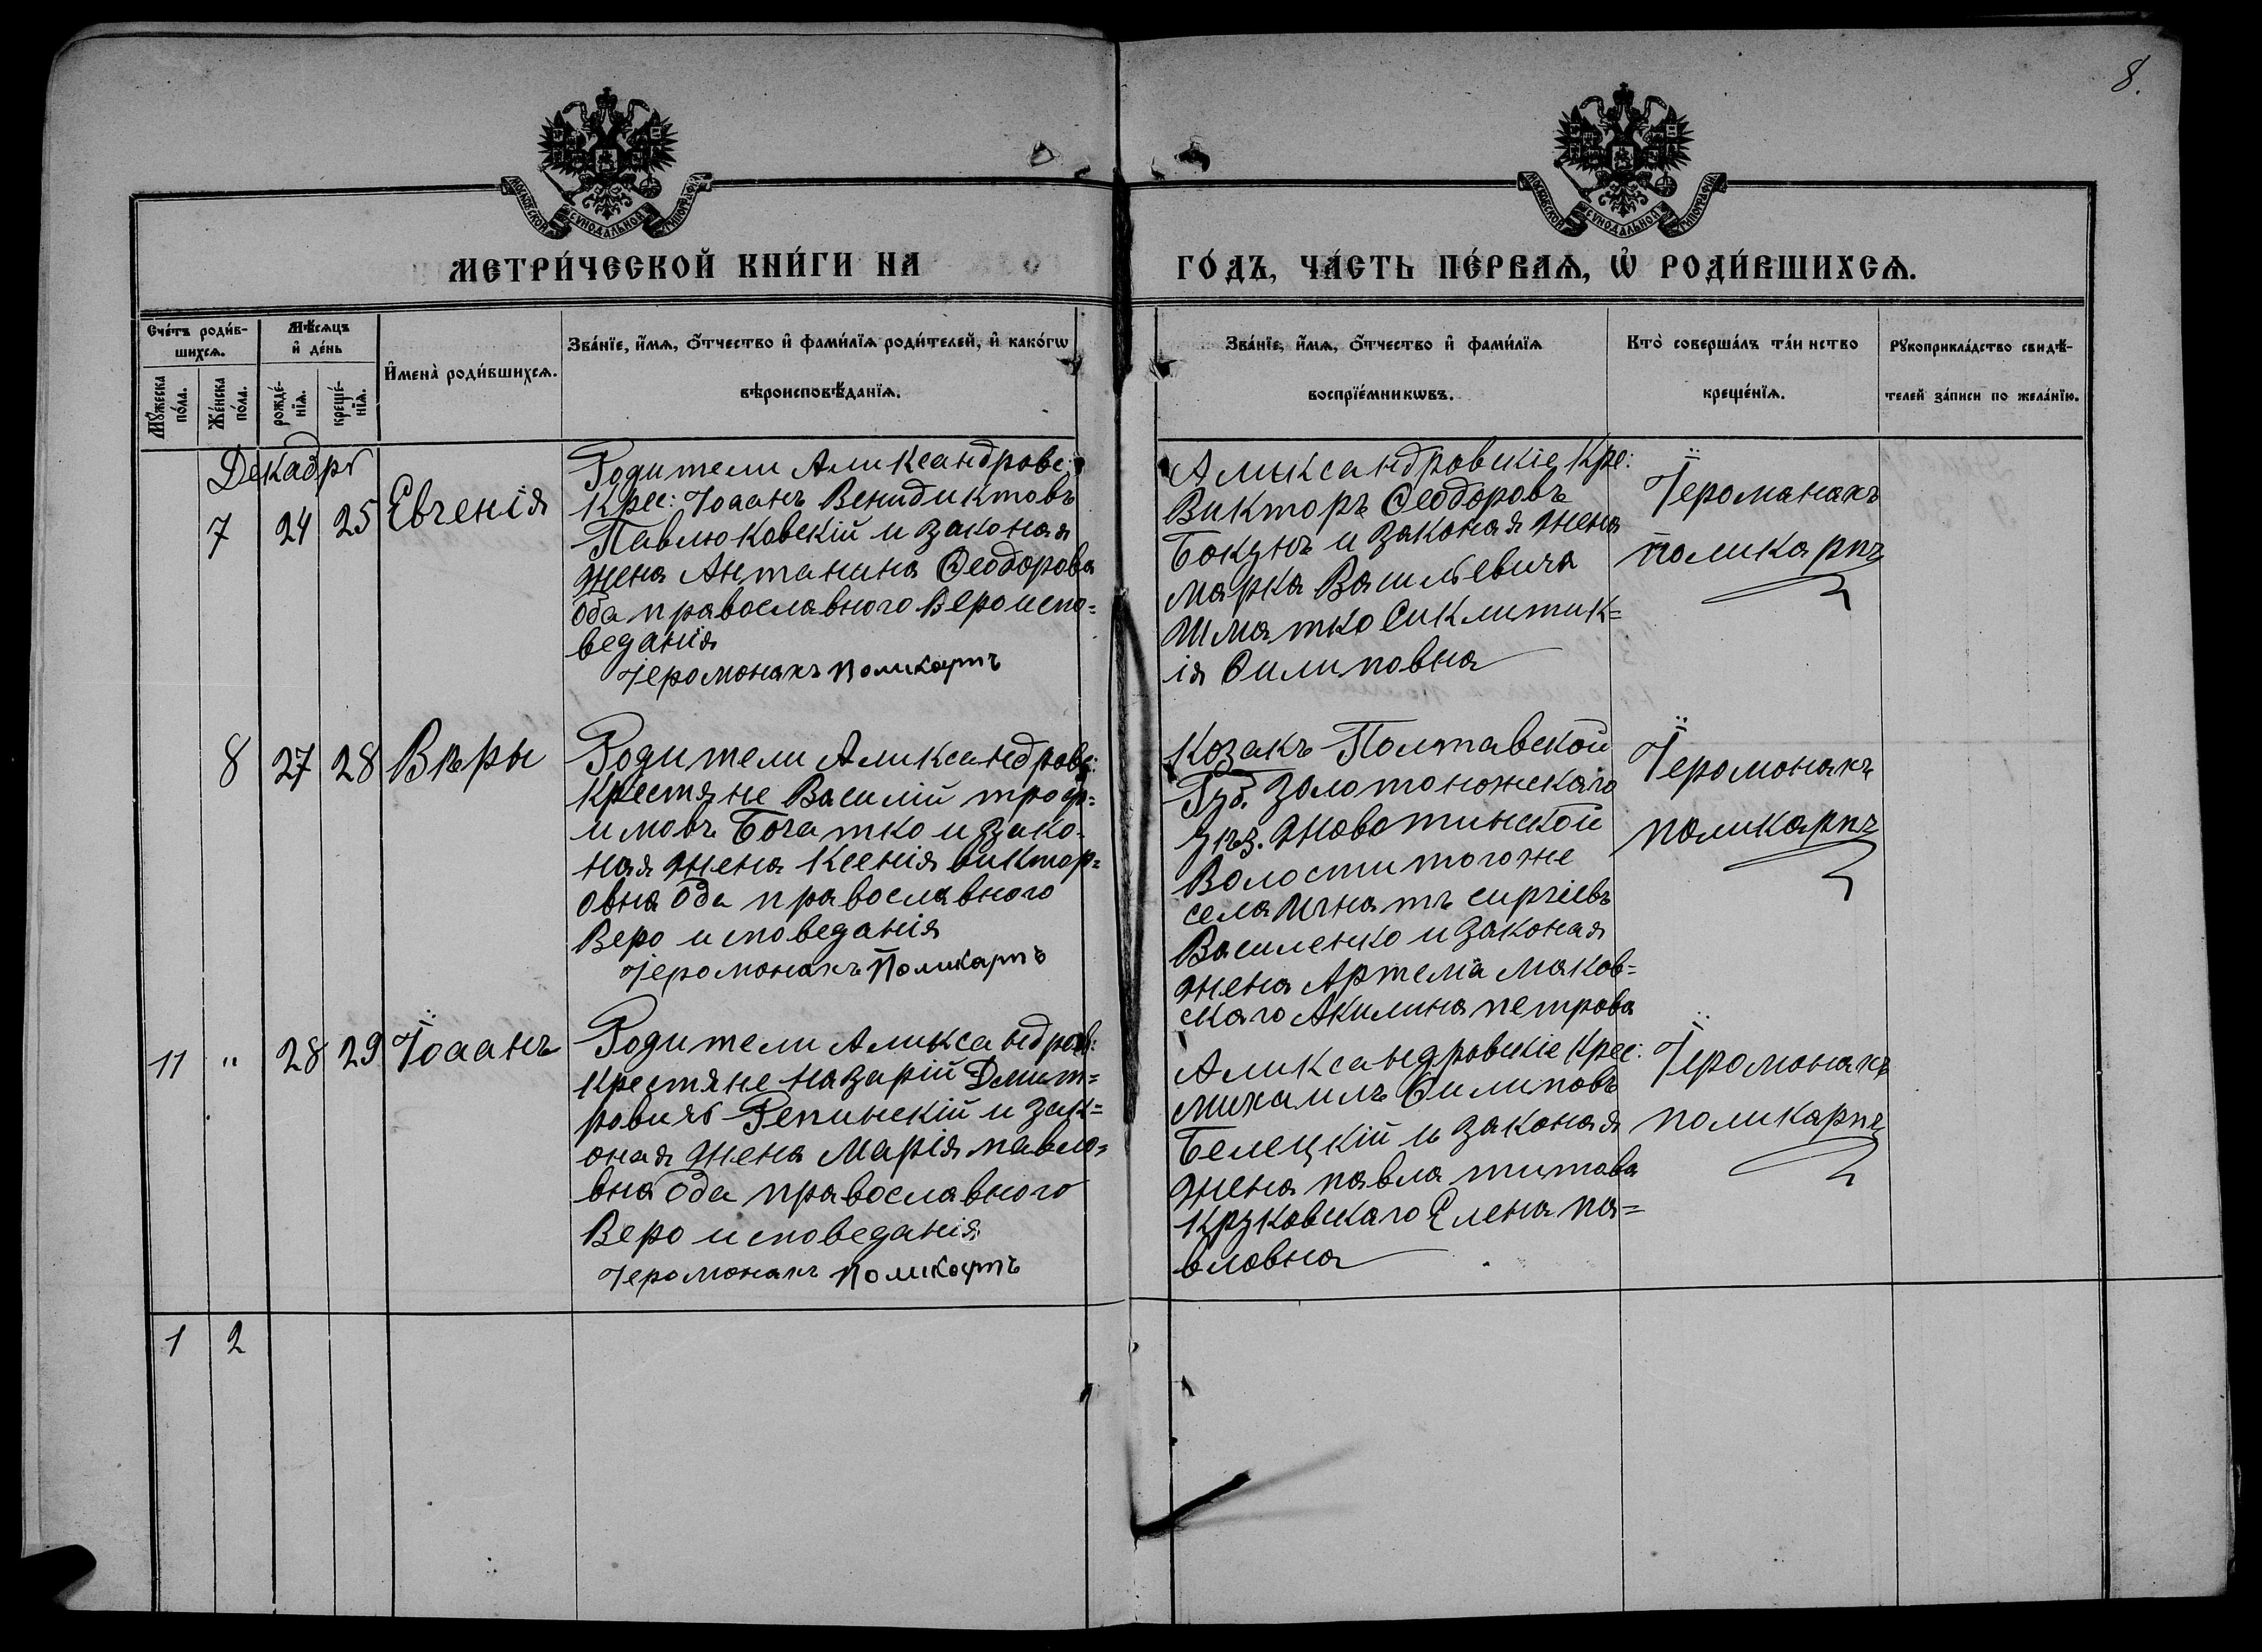 8.
МОСКОВСКОЙ СѴНОДАЛЬНОЙ ТИПОГРАФІИ
МОСКОВСКОЙ СѴНОДАЛЬНОЙ ТИПОГРАФІИ
МЕТРИ́ЧЕСКОЙ КНИ́ГИ НА ГО́ДЪ, ЧА́СТЬ ПЕ́РВАѦ, Ѡ҆ РОДИ́ВШИХСѦ.
Сче́тъ роди́в-
шихсѧ.
Мꙋ́жеска
по́ла.
Же́нска
по́ла.
Мѣ́сѧцъ
и҆ де́нь
рожде́-
нїѧ.
креще́-
нїѧ.
И҆мена̀ роди́вшихсѧ.
Зва́нїе, и҆́мѧ, ѻ҆́тчество и҆ фами́лїѧ роди́телей, и҆ како́гѡ
вѣроисповѣ́данїѧ.
Зва́нїе, и҆́мѧ, ѻ҆́тчество и҆ фами́лїѧ
воспрїе́мникѡвъ.
Кто̀ соверша́лъ та́инство
креще́нїѧ.
Рꙋкоприкла́дство свидѣ́-
телей за́писи по жела́нїю.
Декабрь
7 24 25 Евгенія
Родители Аликсандровс:
Крес: Іоаанъ Венидиктовъ
Павлюковскій и законая
жена Антанина Ѳеодорова
оба православного Вероиспо=
веданія
Іеромонахъ Поликарпъ
Аликсандровскіе Кре:
Викторъ Ѳеодоровъ
Бокунъ и законая жена
марка Васильевича
Шматко Сиклитик=
ія Филиповна
Іероманахъ
поликарпъ
8 27 28 Вѣры
Родители Аликсандровс:
Крестяне Василій троф=
имовъ Богатко и зако-
ная жена Ксенія виктор=
овна оба православного
Веро исповеданія
Іеромонахъ Поликарпъ
Козакъ Полтавской
Губ. Золотоножскаго
уѣз. Жовотинской
Волости тогоже
села Игнатъ сиргіевъ
Василенко и законая
жена Артема Маков=
скаго Акилина петрова
Іеромонахъ
поликарпъ
11 " 28 29 Іоаанъ
Родители Аликсандров:
Крестяне назарій Дмит=
ровичъ Репинскій и зак=
оная жена Марія павло=
вна оба православного
Веро исповеданія
Іеромонахъ Поликарпъ
Аликсандровскіе Крес:
михаилъ Филиповъ
Белецкій и законая
жена павла титова
Круковскаго Елена па=
вловна
Іеромонахъ
поликарпъ
1 2